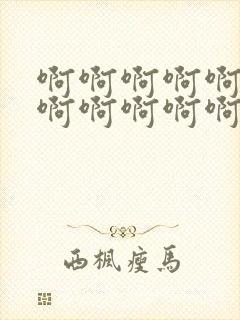 啊啊啊啊啊
啊啊啊啊啊
西楓瘦馬